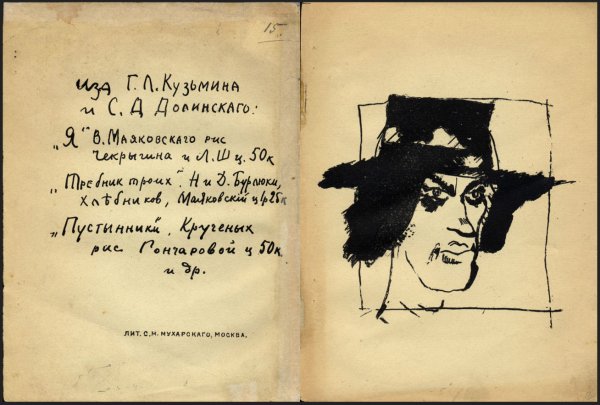 15
изд Г. Л. Кузьмина
и С. Д Долинскаго:
„Я" В. Маяковскаго рис
Чекрыгина и Л. Ш ц. 50к
„Требник троих". Н и Д. Бурлюки,
Хлѣбников, Маяковскій ц 1р 25к
„Пустынники", Крученых
рис Гончаровой ц 50к
и др.
ЛИТ. С.Н. МУХАРСКАГО, МОСКВА.